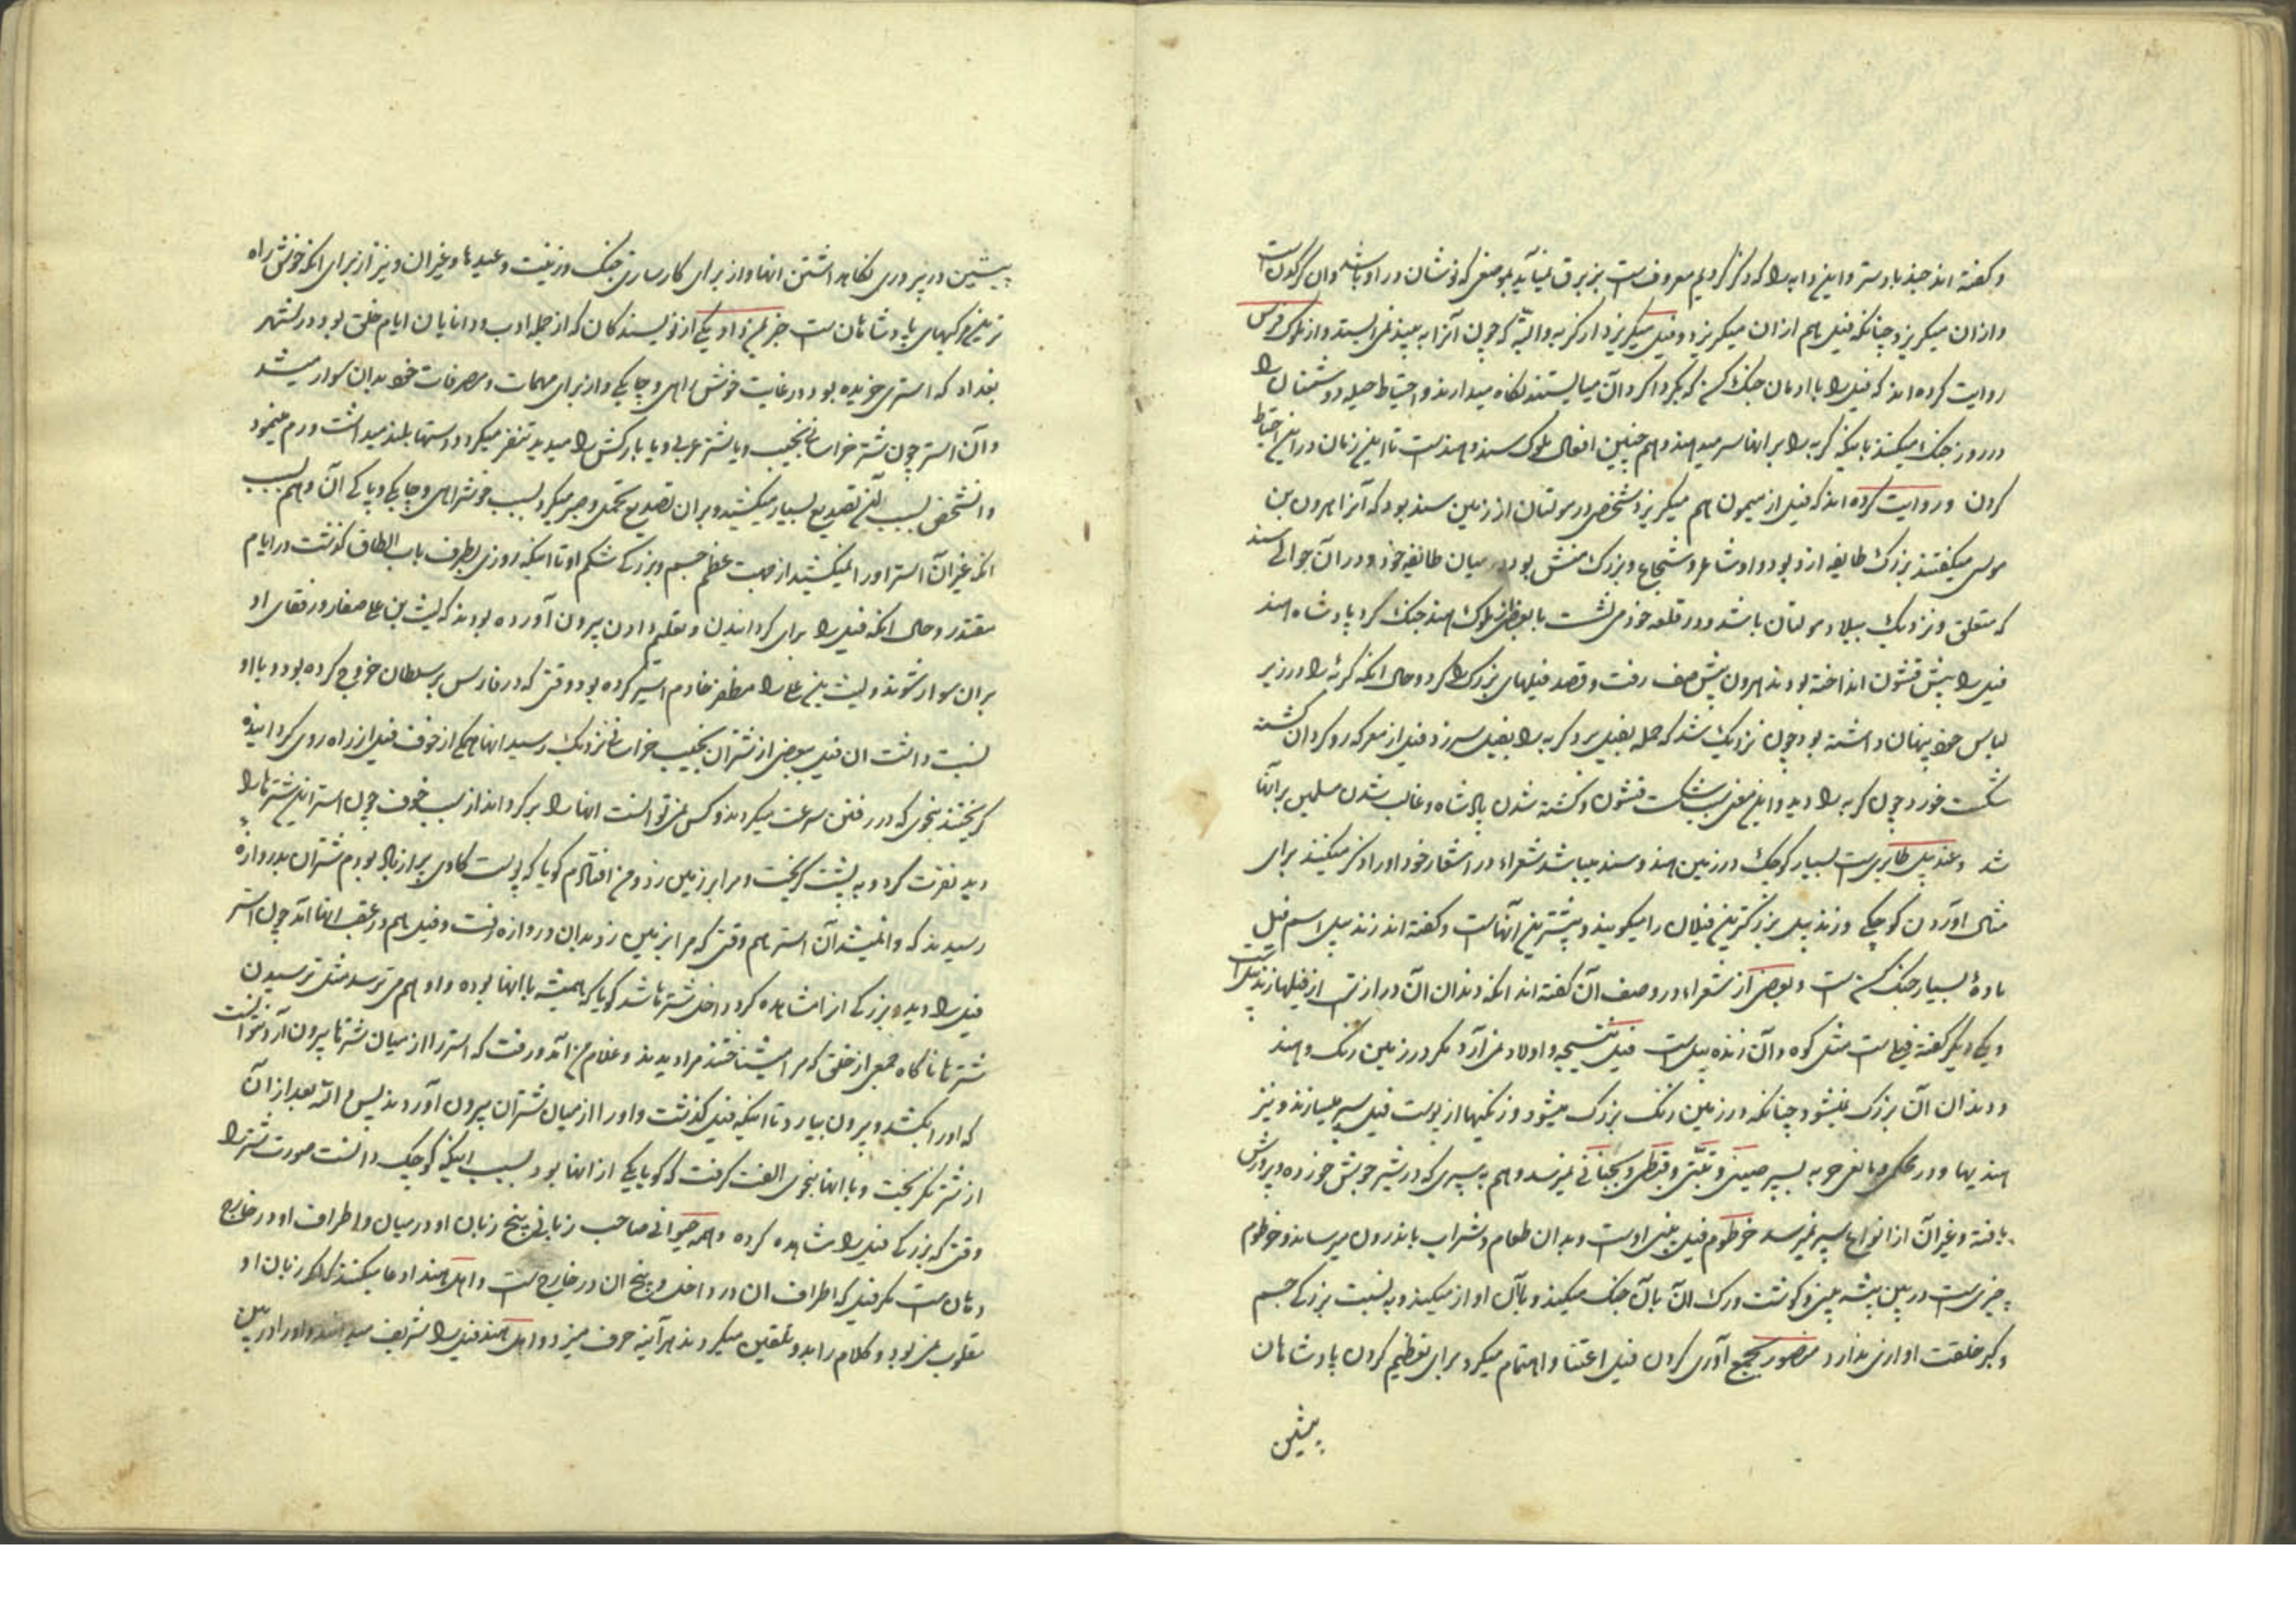 و گفته اند جند بادستر و این دابه را که ذکر کردیم معروفست بزبرق نمیآید بموضعی که نوشان در او باشد و ان کرکدن است
و از ان میگریزد چنانکه فیل هم از ان میگریزد و فیل میگریزد از گربه والبته که چون آنرا به بیند نمی ایستد و از ملوک فرس
روایت کرده اند که فیل را با ادمان جنک کسی که بگرداگرد آن میایستند نگاه میدارند و احتیاط حیله دشمنان را
در روز جنک میکنند باینکه گربه را بر انها سر میدهند و هم چنین افعال ملوک سند و هند ست تا این زمان در این احتیاط
کردن و روایت کرده اند که فیل از میمون هم میگریزد و شخصی در مولتان از زمین سند بود که آنرا هرون بن
موسی میگفتند بزرک طایفه ازد بود و او شاعر و شجاع و بزرک منش بود در میان طایفه خود و در آن حوالی سند
که متعلق و نزدیک ببلاد مولتان باشد و در قلعه خود می نشست با بعضی از ملوک هند جنک کرد پادشاه هند
فیل را پیش قشون انداخته بودند هرون پیش صف رفت و قصد فیلهای بزرک را کرد و حال انکه گربهٔ را در زیر
لباس خود پنهان داشته بود چون نزدیک شد که حمله بفیل برد گربه را بفیل سر زد فیل از معرکه رو گردان گشته
شکست خورد چون گربه را دید و این معنی سبب شکست قشون و کشته شدن پادشاه و غالب شدن مسلمین بر آنها
شد و عندبیل طایریست بسیار کوچک در زمین هند و سند میباشد شعراء در اشعار خود او را ذکر میکنند برای
مثال آوردن کوچکی و زندبیل بزرکترین فیلان را میگویند و پیشترین آنهاست و گفته اند زندبیل اسم فیل
مادهٔ بسیار جنک کن ست و بعضی از شعراء در وصف آن گفته اند انکه دندان آن درازتر از فیلها زندبیل است
و یکی دیگر گفته فیلیست مثل کوه و آن زنده بیل ست فیل نتیجه و اولاد نمی آرد مگر در زمین زنک و هند
و دندان آن بزرک نمیشود چنانکه در زمین زنک بزرک میشود و زنگیها از پوست فیل سپر میسازند و نیز
هندیها و در محکمی و مانعی حربه بسپر صینی و تبتی و قبطی و بجائی نمیرسد و هم به سپری که در شیر جوش خورده و پرورش
یافته و غیر آن از انواع سپر نمیرسد خرطوم فیل بینی اوست و بدان طعام و شراب باندرون میرساند و خرطوم
چیزیست در بین پشه بینی و گوشت و رک و الآن بآن جنک میکند و بآن اواز میکند و به نسبت بزرکی جسم
و کبر خلقت اوازی ندارد منصور بجمع آوری کردن فیل اعتنا و اهتمام میکرد برای تعظیم کردن پادشاهان
پیشین
پیشین در پروری نگاه داشتن انها و از برای کارسازی جنک و زینت و عیدها و غیر ان و نیز از برای انکه خوش راه
ترین مرکبهای پادشاهان ست خبر میداد یکی از نویسندکان که از جمله ادب و دانایان ایام خلق بود در شهر
بغداد که استری خریده بود در غایت خوش راهی و چابکی و از برای مهمات و مصرفات خود بدان سوار میشد
و آن استر چون شتر خراسانی نجیب و یا شتر عربی و یا بارکش را میدید تنفر میکرد و دستها بلند میداشت و رم مینمود
و انشخص بسبب آن تصدیع بسیار میکشید و بر ان تصدیع تحمل و صبر میکرد بسبب خوشراهی و چابکی و پاکی آن و هم بسبب
انکه غیر آن استر او را نمیکشید از جهت عظم جسم و بزرکی شکم او تا اینکه روزی بطرف باب الطاق گذشت در ایام
مقتدر و حال انکه فیل را برای گردانیدن و تعلیم دادن بیرون آورده بودند که لیث بن علی صفار و رفقای او
بر ان سوار شوند و لیث بن علی را مظفر خادم اسیر کرده بود وقتی که در فارس بر سلطان خروج کرده بود و با او
نسبت داشت ان فیل ببعضی از شتران نجیب خراسانی نزدیک رسید انها همکی از خوف فیل از راه روی گردانیده
گریختند بنحوی که در رفتن سرعت میکردند و کسی نمی توانست انها را برگرداند از سبب خوف چون استر این شترها را
دید نفرت کرد و به پشت گریخت و مرا بر زمین زد و من افتادم گویا که پوست کاوی پر از باد بودم شتران بدروازه
رسیدند که وا نمیشد آن استر هم وقتی که مرا بزمین زد بدان دروازه رفت و فیل هم در عقب انها آمد چون استر
فیل را دید و بزرکی انرا مشاهده کرد داخل شترها شد گویا که همیشه با انها بوده و او هم می ترسد مثل ترسیدن
شترها ناگاه جمعی از خلق که مرا میشناختند مرا دیدند و غلام من آمد و رفت که استر را از میان شترها بیرون آرد نتوانست
که او را بکشد و بیرون بیارد تا اینکه فیل گذشت و او را از میان شتران بیرون آوردند پس والله بعد از آن
از شتر نگریخت و با انها بنحوی الفت گرفت که گویا یکی از انها بود بسبب اینکه کوچک دانست صورت شتر را
وقتی که بزرکی فیل را مشاهده کرده و همه حیوانی صاحب زبانی بیخ زبان او در میان و اطراف او در خارج
دهان ست مگر فیل که اطراف ان در داخل و بیخ ان در خارج ست و اهل هند ادعا میکنند که اگر زبان او
مقلوب نمی بود و کلام را بدو تلقین میکردند هر آینه حرف میزد و اهل هند فیل را شریف میدانند و او را در بین